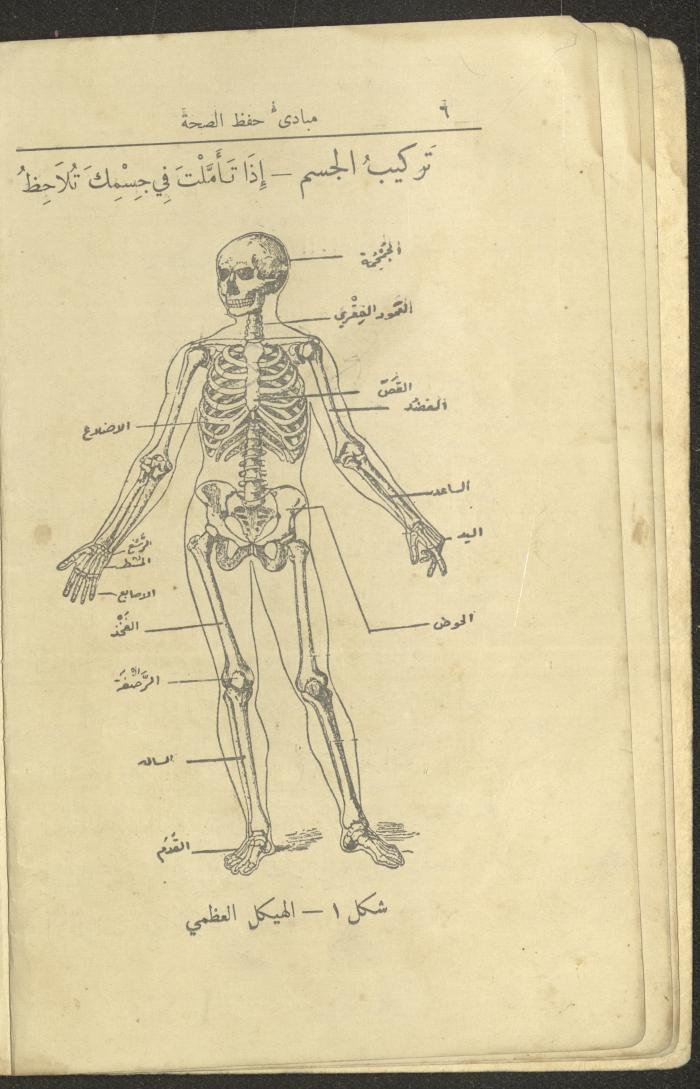 ٦
مبادئ حفظ الصحة
تَركيبُ الجسم — إِذَا تَأَمَّلْتَ فِي جِسْمِكَ تُلَاحِظُ
الجُمْجُمَة
العَمود الفِقْري
القَصّ
العضُد
الاضلاع
الساعد
اليد
الرُّسْغ
المشط
الاصابع
الفَخْذ
الحوض
الرَّضفَة
الساق
القَدَم
شكل ١ — الهيكل العظمي